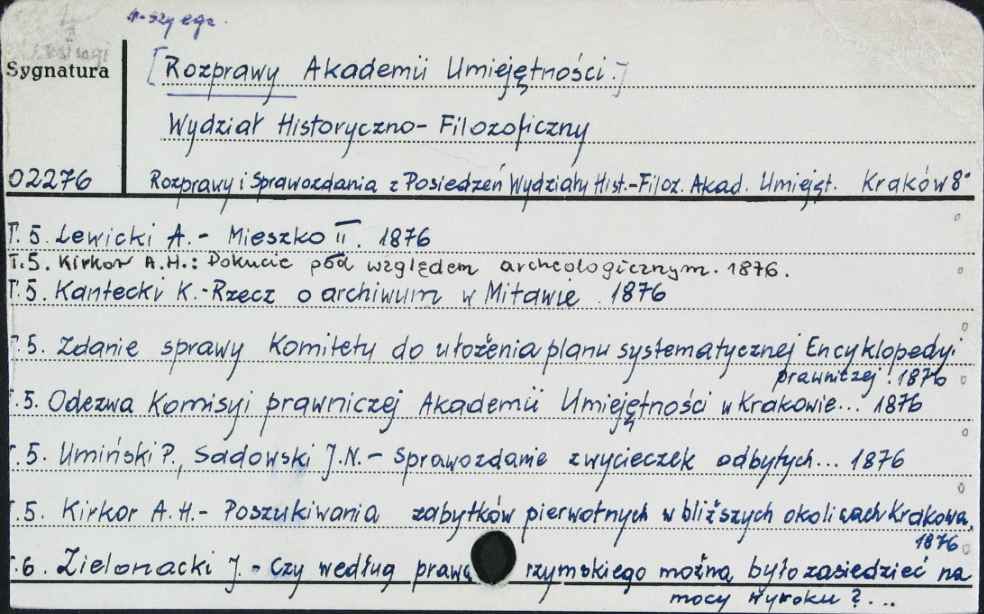 1-szy egz.
Sygnatura
[Rozprawy Akademii Umiejętności.]
Wydział Historyczno-Filozoficzny
02276
Rozprawy i Sprawozdania z Posiedzeń Wydziału Hist.-Filoz. Akad. Umiejęt. Kraków 8°
T.5. Lewicki A. - Mieszko II. 1876
T.5. Kirkor A.H.: Pokucie pod względem archeologicznym. 1876.
T.5. Kantecki K. - Rzecz o archiwum w Mitawie. 1876
T.5. Zdanie sprawy Komitetu do ułożenia planu systematycznej Encyklopedyi
prawniczej. 1876
T.5. Odezwa Komisyi prawniczej Akademii Umiejętności w Krakowie... 1876
T.5. Umiński P., Sadowski J.N. - Sprawozdanie z wycieczek odbytych... 1876
T.5. Kirkor A.H. - Poszukiwania zabytków pierwotnych w bliższych okolicach Krakowa.
1876
T.6. Zielonacki J. - Czy według prawa rzymskiego można było zasiedzieć na
mocy wyroku?...